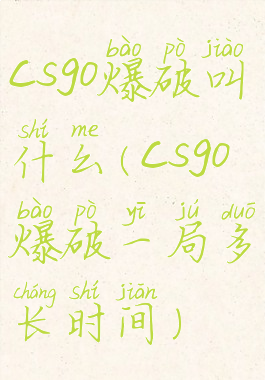 bào pò jiào
CS90爆破叫
shí me
什么(CS90
bào pò yī jú duō
爆破一局多
cháng shí jiān
长时间)